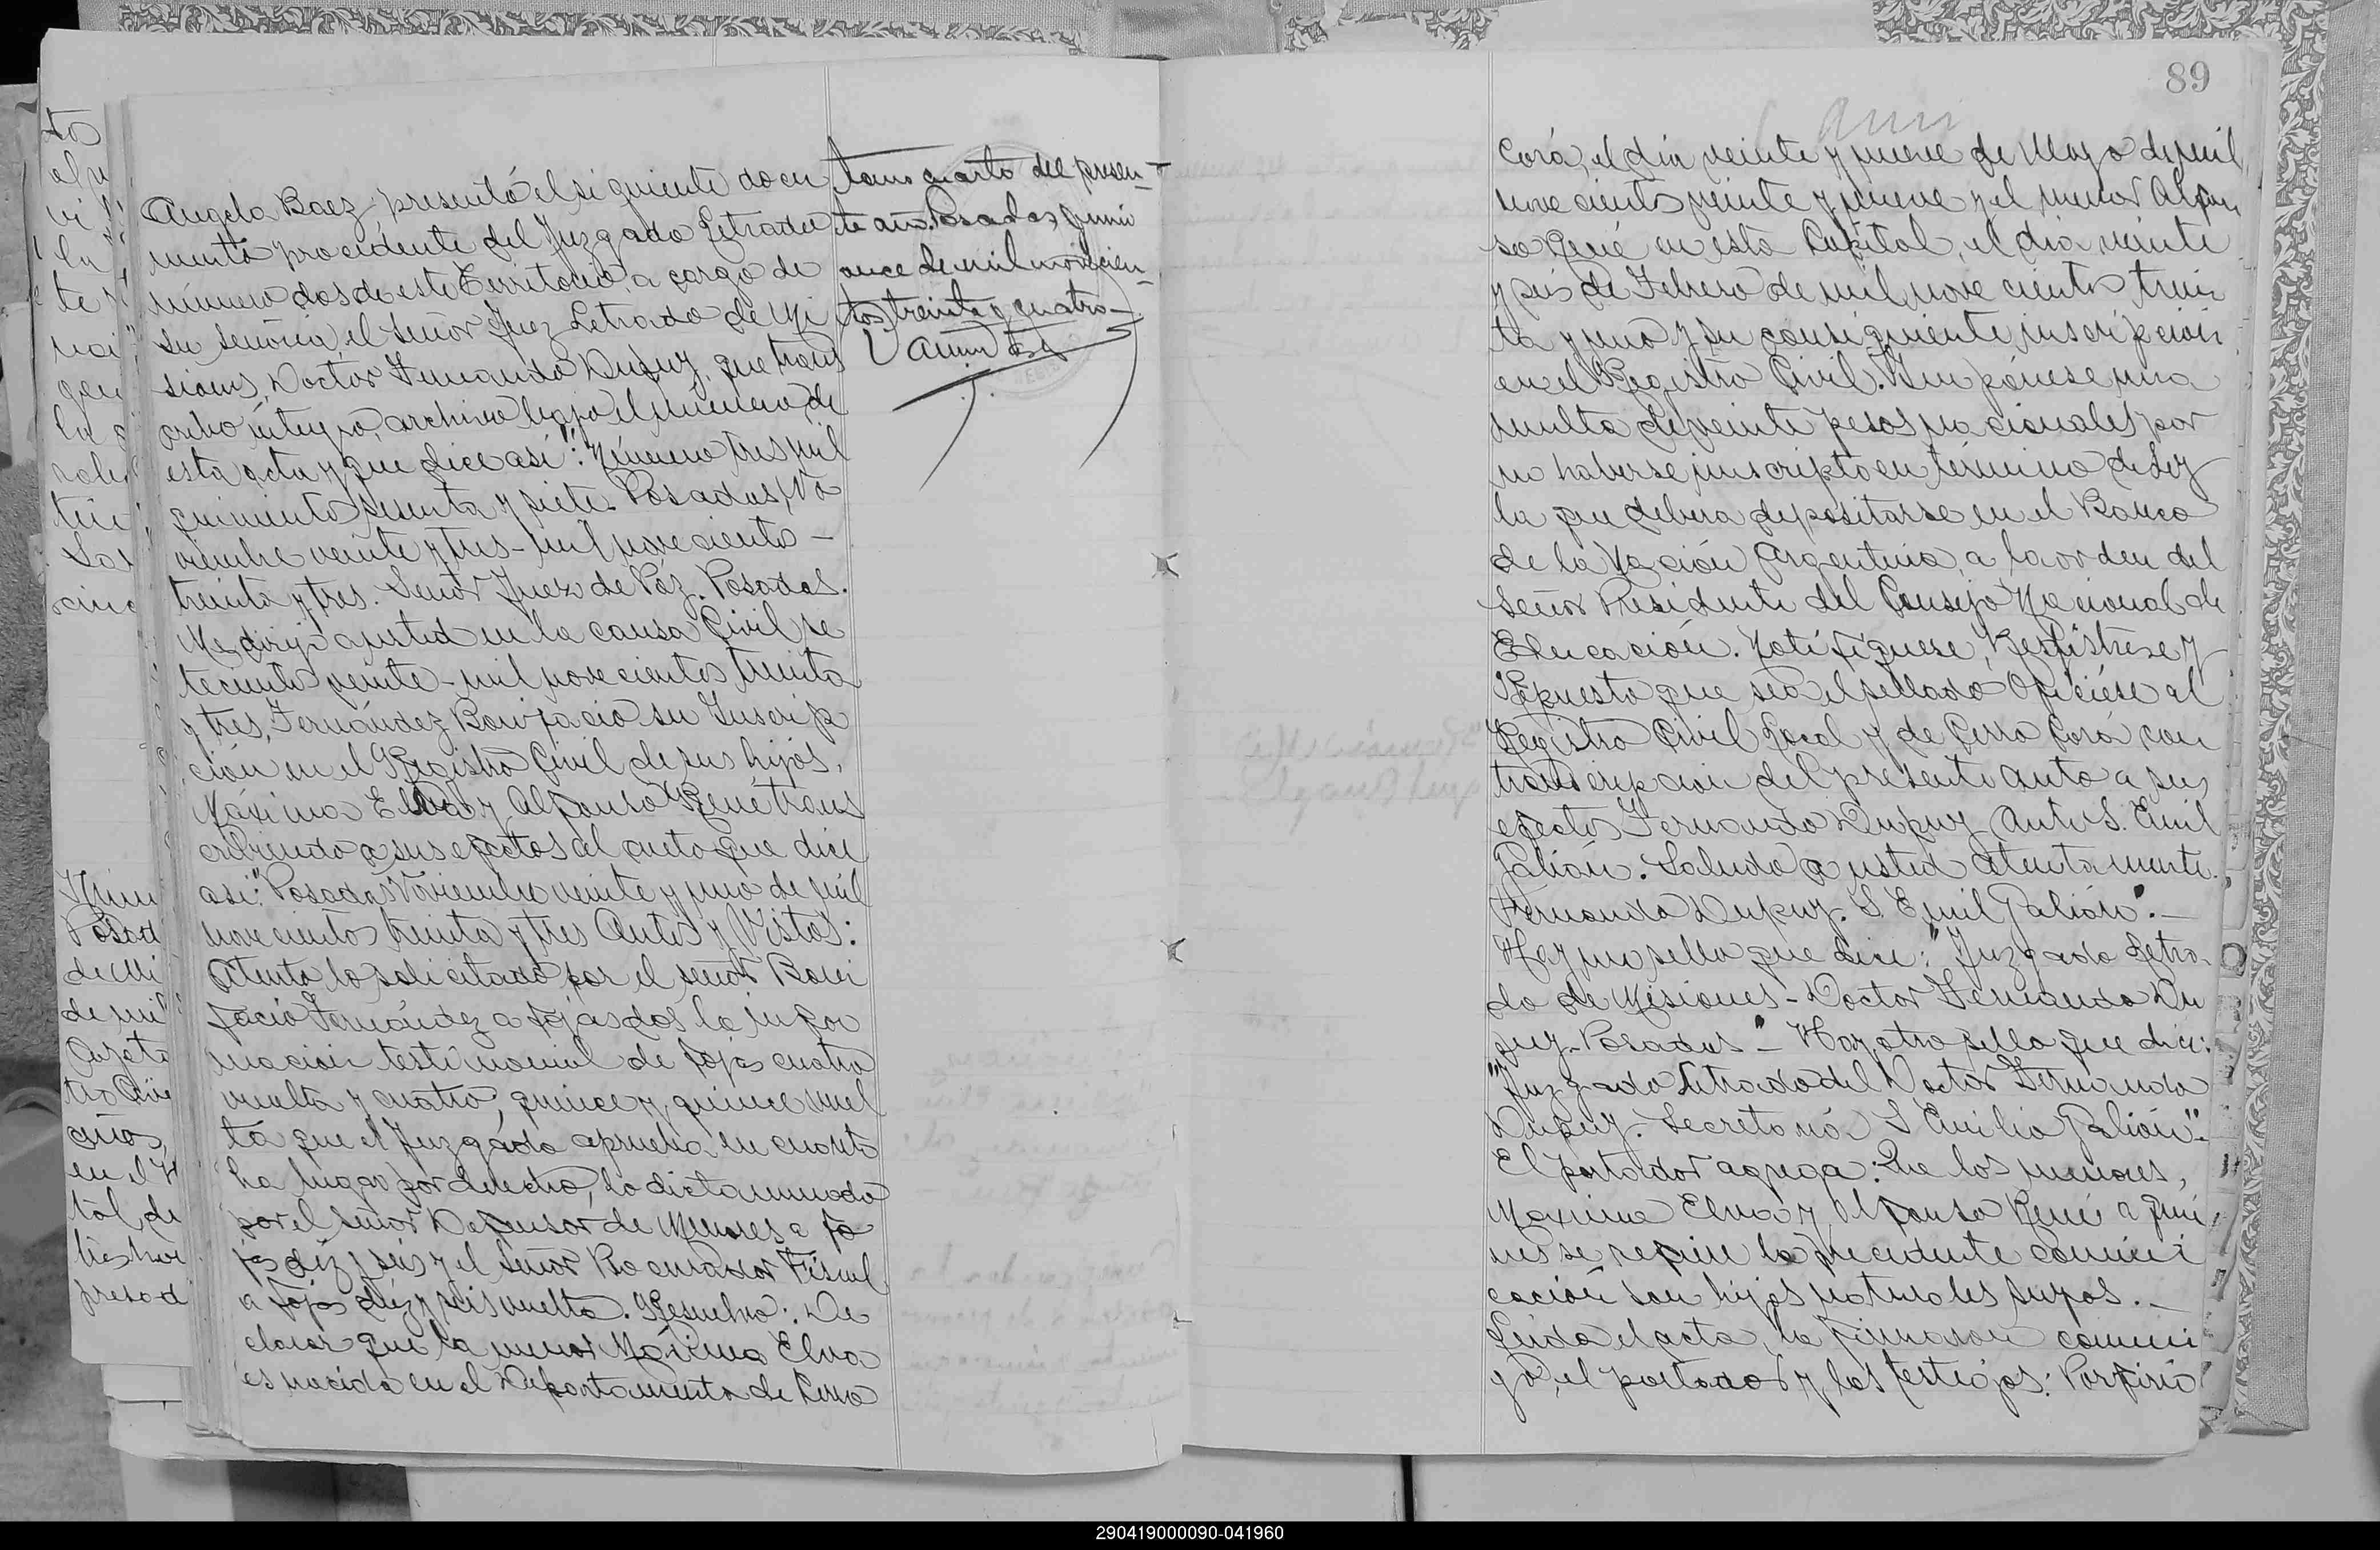 Angela Baez presentó el siguiente docu
mento procedente del Juzgado Letrado
número dos de este Territorio, a cargo de
su señoría el señor Juez Letrado de Mi
siones, Doctor Fernando Dupuy, que trans
cribo íntegro, archivo bajo el número de
esta acta y que dice así: "Número tres mil
quinientos sesenta y siete. Posadas, No
viembre veinte y tres - mil novecientos -
treinta y tres. Señor Juez de Páz. Posadas.
Me dirijo a usted en la causa Civil se
tecientos veinte - mil novecientos treinta
y tres, Fernández Bonifacio su Inscrip
ción en el Registro Civil de sus hijos,
Máxima Elva y Alfonso René trans
cribiendo a sus efectos el auto que dice
así: "Posadas Noviembre veinte y uno de mil
novecientos treinta y tres Autos y Vistos:
Atento lo solicitado por el señor Boni
facio Fernández a fojas dos la infor
mación testimonial de fojas cuatro
vuelta y cuatro, quince y quince vuel
ta que el Juzgado aprueba en cuanto
ha lugar por derecho, lo dictaminado
por el señor Defensor de Menores a fo
jas diez y seis y el señor Procurador Fiscal
a fojas diez y seis vuelta. Resuelvo: De
clarar que la menor Máxima Elva
es nacida en el Departamento de Cerro
tomo cuarto del presen-
te año. Posadas, Junio
once de mil novecien-
tos treinta y cuatro-
89
Corá, el día veinte y nueve de Mayo de mil
novecientos veinte y nueve y el menor Alfon
so René en esta Capital, el día veinte
y seis de Febrero de mil novecientos trein
ta y uno y su consiguiente inscripción
en el Registro Civil. Impónese una
multa de veinte pesos nacionales por
no haberse inscripto en término de Ley
la que deberá depositarse en el Banco
de la Nación Argentina, a la orden del
Señor Presidente del Consejo Nacional de
Educación. Notifíquese, Regístrese y
Repuesto que sea el sellado Ofíciese al
Registro Civil local y de Cerro Corá con
transcripción del presente auto a sus
efectos Fernando Dupuy Ante S. Emil
Galión. Saludo a usted atentamente.
Fernando Dupuy. S. Emil Galión".-
Hay un sello que dice: "Juzgado Letra
do de Misiones - Doctor Fernando Du
puy - Posadas" - Hay otro sello que dice:
"Juzgado Letrado del Doctor Fernando
Dupuy. Secretaría S Emilio Galión".
El portador agrega: Que los menores,
Maxima Elva y Alfonso René a quie
nes se refiere la precedente comuni
cación son hijos naturales suyos.-
Leida el acta, la firmaron conmi
go, el portador y los testigos: Porfirio
290419000090-041960